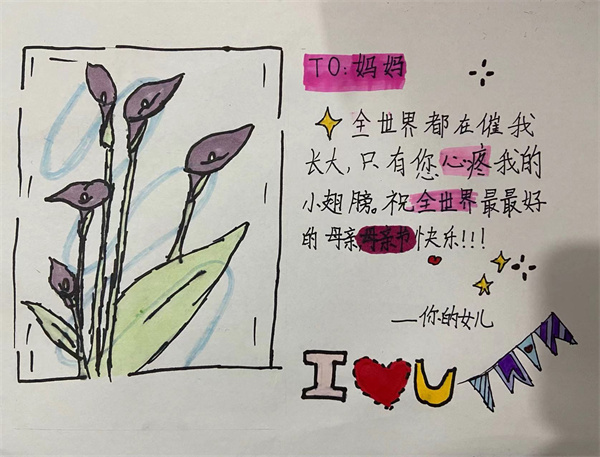 TO: 妈妈
全世界都在催我
长大,只有您心疼我的
小翅膀。祝全世界最最好
的母亲母亲节快乐!!!
——你的女儿
I ❤ U